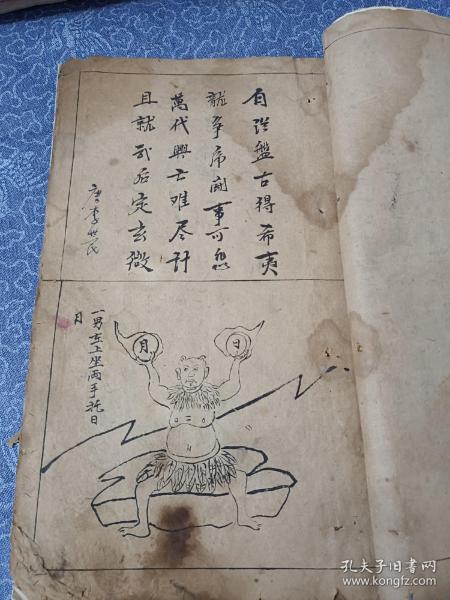 自從盤古得希夷
龍争虎鬥事可悲
萬代興亡难尽计
且就武后定玄微
唐李世民
一男石上坐两手托日
月
月
日
孔夫子旧书网
www.kongfz.com